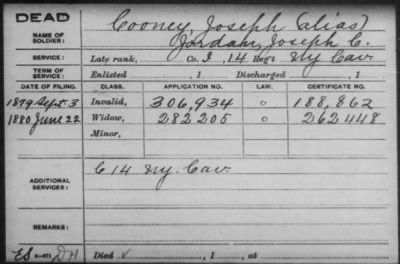 DEAD
NAME OF SOLDIER:
Cooney, Joseph (alias)
Jordan, Joseph C.
SERVICE: Late rank, Co. I, 14 Reg't Ny Cav
TERM OF SERVICE: Enlisted , 1 Discharged , 1
DATE OF FILING. CLASS. APPLICATION NO. LAW. CERTIFICATE NO.
1879 Sept. 3 Invalid, 306,934 o 188,862
1880 June 22 Widow, 282 205 o 262 448
Minor,
ADDITIONAL SERVICES: C 14 Ny. Cav.
REMARKS:
Died , 1 , at